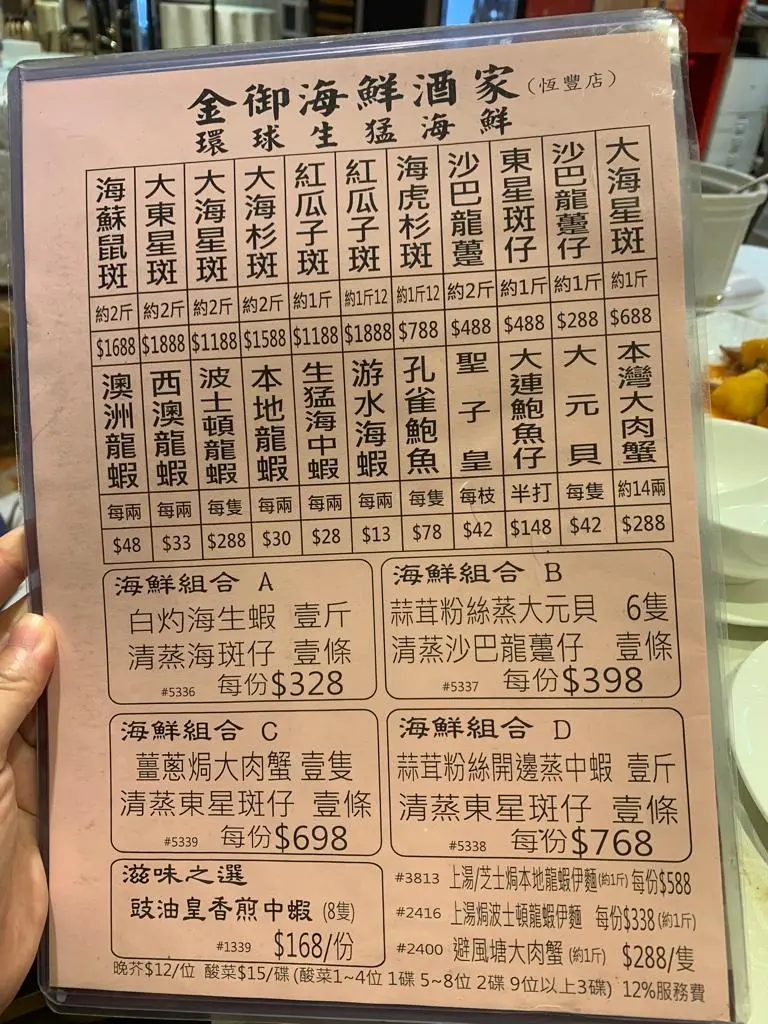 金御海鮮酒家(恆豐店)
環球生猛海鮮
海蘇鼠斑 大東星斑 大海星斑 大海杉斑 紅瓜子斑 紅瓜子斑 海虎杉斑 沙巴龍躉 東星斑仔 沙巴龍躉仔 大海星斑
約2斤 約2斤 約2斤 約2斤 約1斤 約1斤12 約1斤12 約2斤 約1斤 約1斤 約1斤
$1688 $1888 $1188 $1588 $1188 $1888 $788 $488 $488 $288 $688
澳洲龍蝦 西澳龍蝦 波士頓龍蝦 本地龍蝦 生猛海中蝦 游水海蝦 孔雀鮑魚 聖子皇 大連鮑魚仔 大元貝 本灣大肉蟹
每兩 每兩 每隻 每兩 每兩 每兩 每隻 每枝 半打 每隻 約14兩
$48 $33 $288 $30 $28 $13 $78 $42 $148 $42 $288
海鮮組合 A
白灼海生蝦 壹斤
清蒸海斑仔 壹條
#5336 每份$328
海鮮組合 B
蒜茸粉絲蒸大元貝 6隻
清蒸沙巴龍躉仔 壹條
#5337 每份$398
海鮮組合 C
薑蔥焗大肉蟹 壹隻
清蒸東星斑仔 壹條
#5339 每份$698
海鮮組合 D
蒜茸粉絲開邊蒸中蝦 壹斤
清蒸東星斑仔 壹條
#5338 每份$768
滋味之選
豉油皇香煎中蝦 (8隻)
#1339 $168/份
#3813 上湯/芝士焗本地龍蝦伊麵(約1斤) 每份$588
#2416 上湯焗波士頓龍蝦伊麵 每份$338(約1斤)
#2400 避風塘大肉蟹(約1斤) $288/隻
晚芥$12/位 酸菜$15/碟(酸菜1~4位 1碟 5~8位 2碟 9位以上3碟) 12%服務費